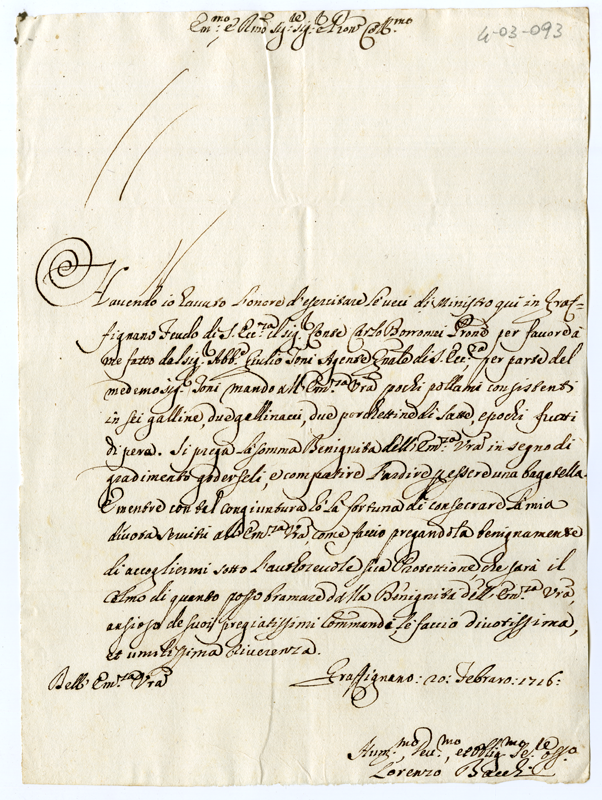 Em.mo e Rmo Sig.re Sig.re e Pron Coll.mo
4-03-093
Havendo io havuto l'onore d'esercitare le veci di Ministro qui in Graf-
fignano feudo di S. Ecc.za il sig.r Conte Carlo Borromei Prone per favore à
me fatto dal sig.r Abb.e Giulio Toni Agente Gnale di S. Ecc.za, per parte del
medemo sig.r Toni mando all'Em.za Vra pochi pollami consistenti
in sei galline, due gallinacci, due porchettine di latte, e pochi frutti
di pera. Si prega la somma Benignità dell'Em.za Vra in segno di
gradimento goderseli, e compatire l'ardire p essere una bagattella.
E mentre con tal congiuntura hò la fortuna di consecrare la mia
divota servitù all'Em.za Vra, come faccio pregandola benignamente
di accogliermi sotto l'autorevole sua Protettione, che sarà il
colmo di quanto posso bramare dalla Benignità dell'Em.za Vra,
ansioso de suoi pregiatissimi Commandi, le faccio divotissima,
et umilissima riverenza.
Dell'Em.za Vra
Graffignano: 20: Febraro: 1716:
Hum.mo, Dev.mo, et obblig.mo Se.re oss.o
Lorenzo Bacchi